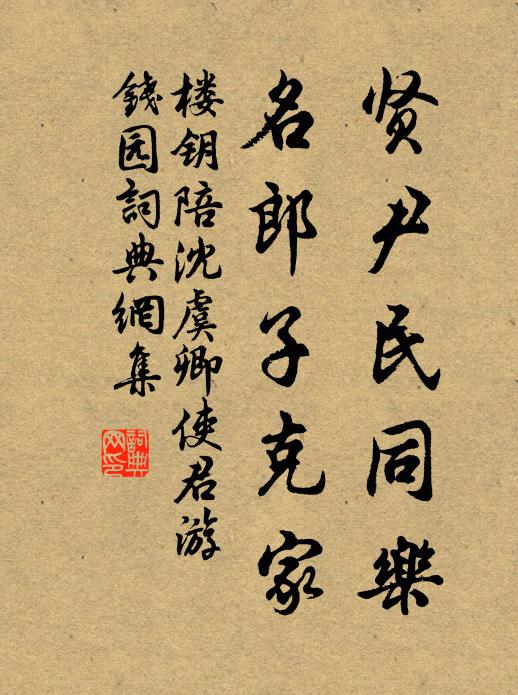 贤尹民同樂
名郎子克家
楼钥陪沈虞卿使君游
錢园詞典網集
詞典
网印